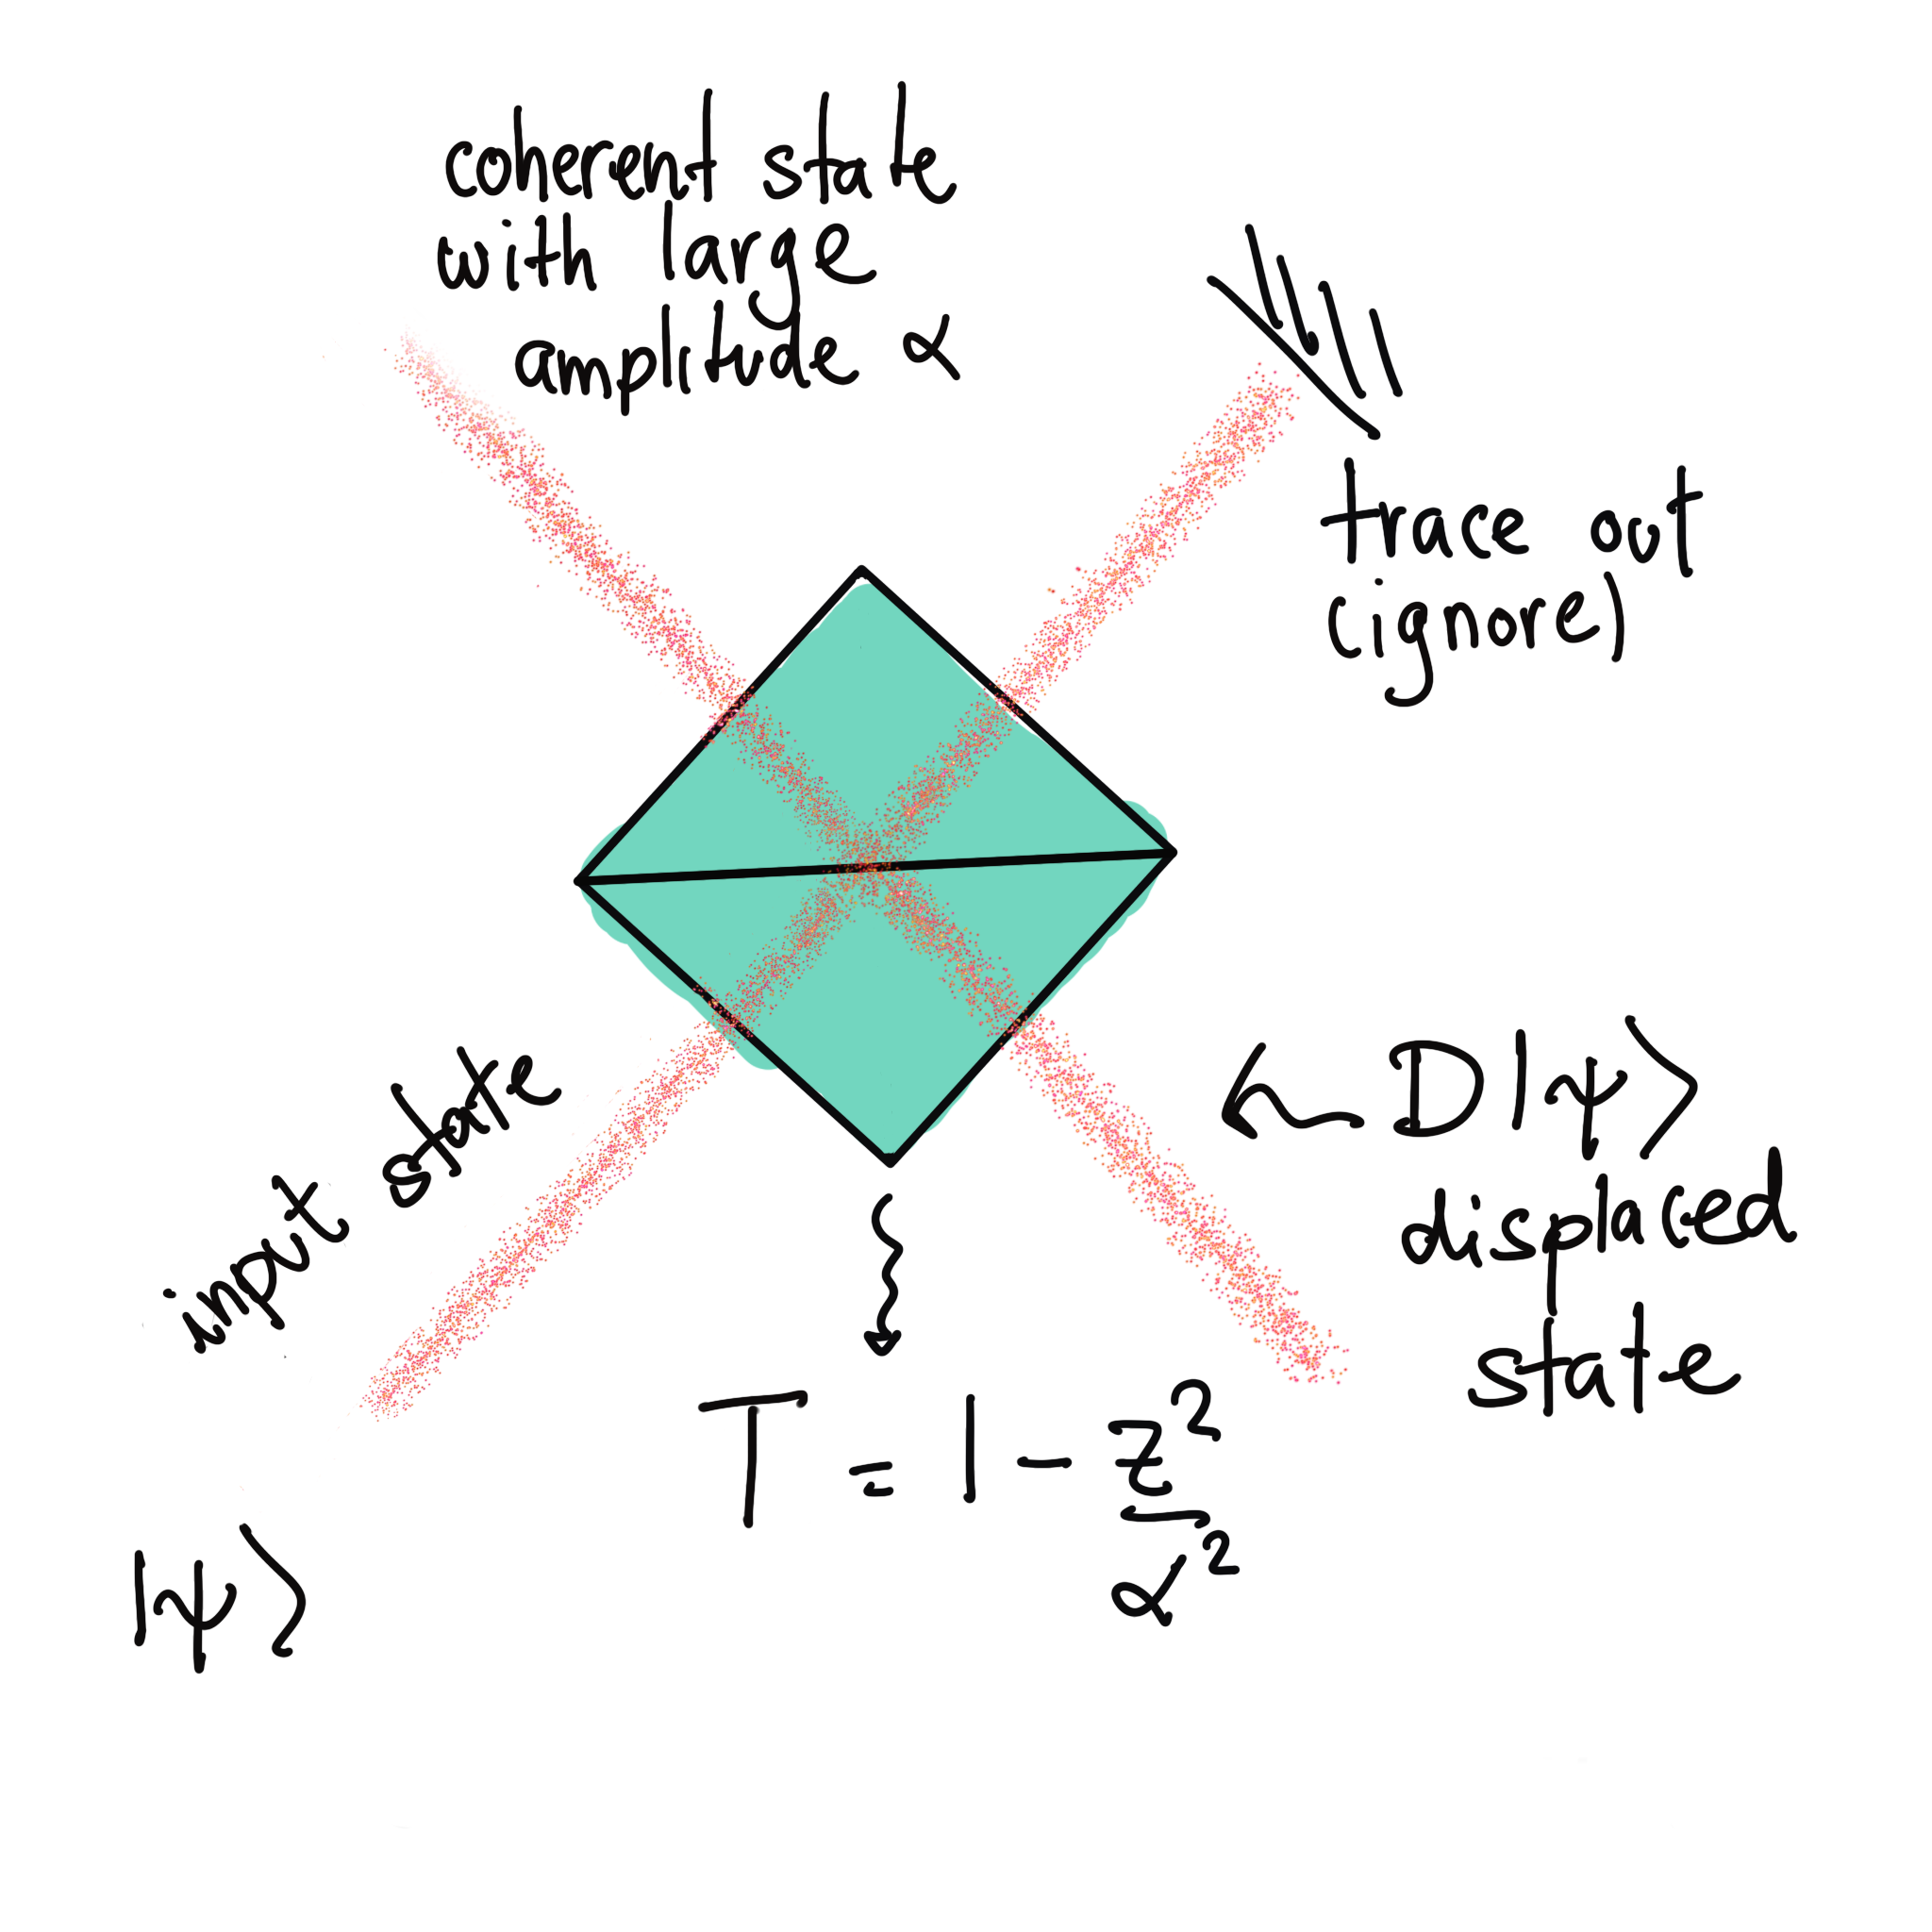 coherent state
with large
amplitude α
trace out
(ignore)
input state
|ψ⟩
← D|ψ⟩
displaced
state
T = 1 - z²/α²